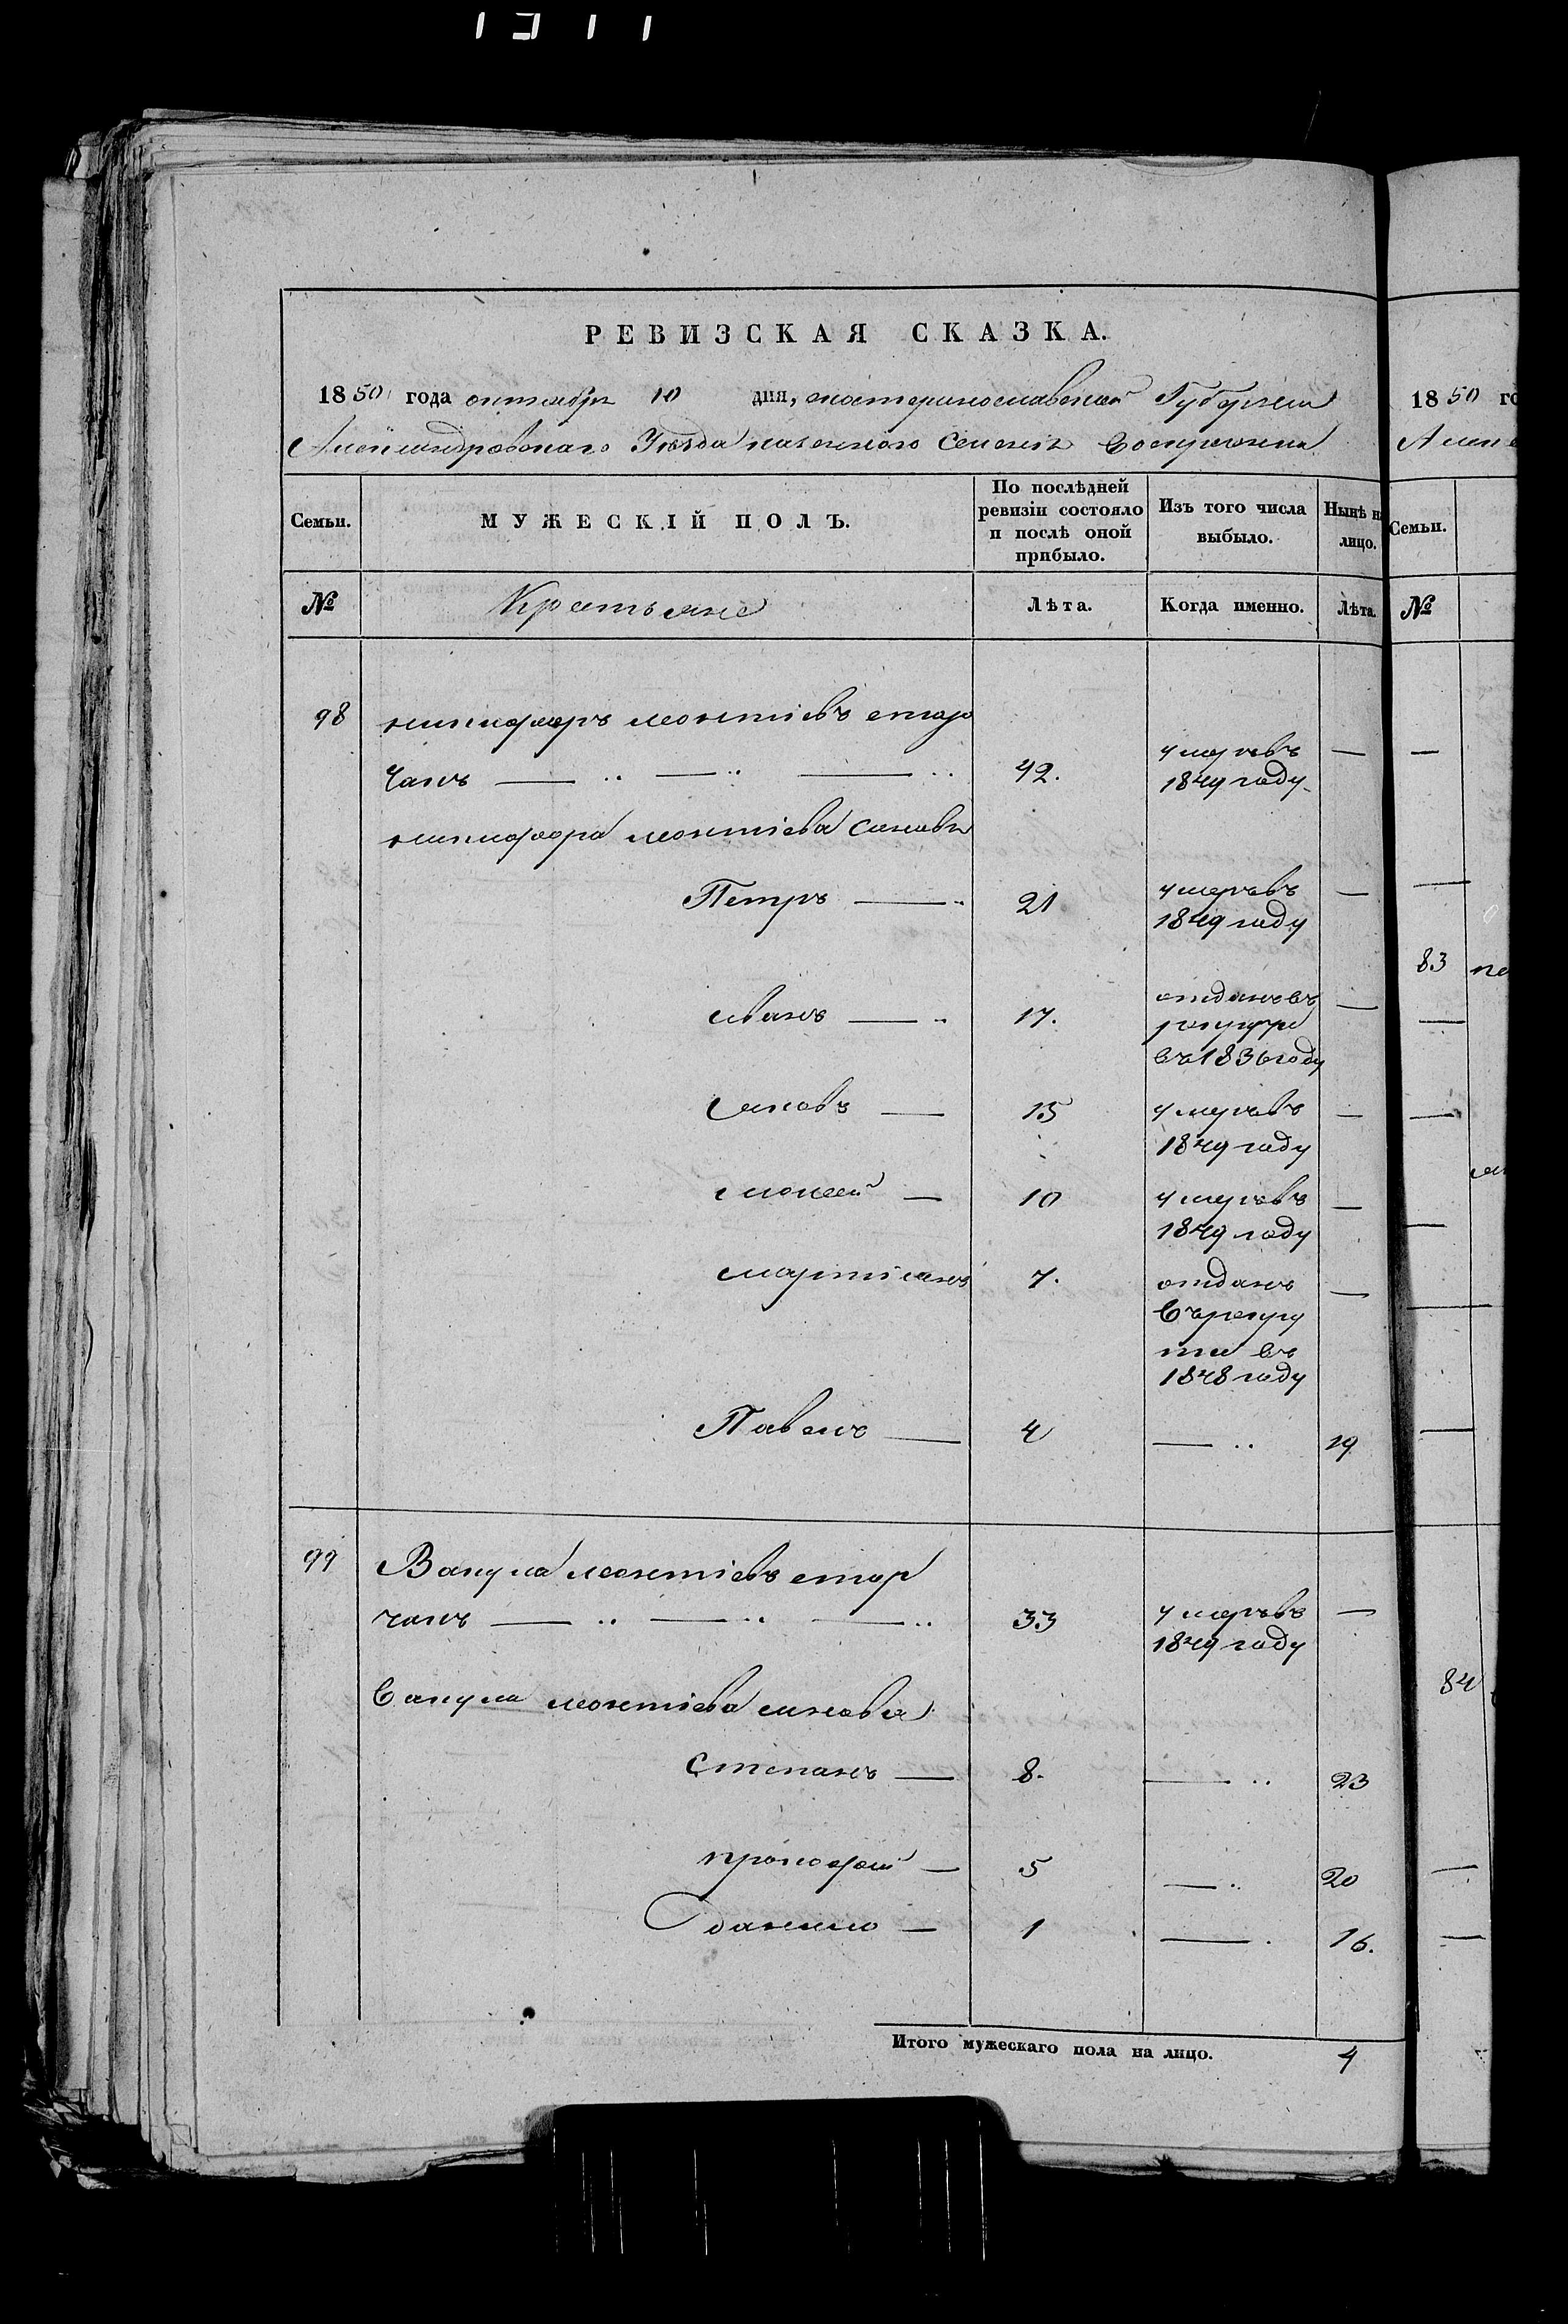 РЕВИЗСКАЯ СКАЗКА.
1850 года октября 10 дня, екатеринославской Губернии
Александровскаго Уѣзда казенного селения Воскресенки
Семьи. МУЖЕСКІЙ ПОЛЪ. По послѣдней ревизіи состояло и послѣ оной прибыло. Изъ того числа выбыло. Нынѣ на лицо.
№ Крестьяне Лѣта. Когда именно. Лѣта.
98 никифоръ леонтіевъ стар
чакъ — .. — .. — .. 42. умеръ въ 1849 году —
никифора леонтіева сыновья
Петръ — .. 21 умеръ въ 1849 году —
иванъ — .. 17. отданъ въ рекруты въ 1836 году —
яковъ — 15 умеръ въ 1849 году —
моисей — 10 умеръ въ 1849 году —
мартинъ 7. отданъ
въ рекру
ты въ
1848 году —
Павелъ — 4 — .. 19
99 Вакула леонтіевъ стар
чакъ — .. — .. — .. 33 умеръ въ 1849 году —
Вакула леонтіева сыновья
степанъ — 8. — .. 23
прокофій — 5 — .. 20
данило — 1 — . 16.
Итого мужескаго пола на лицо. 4
1850 го
Семьи.
№
83
84